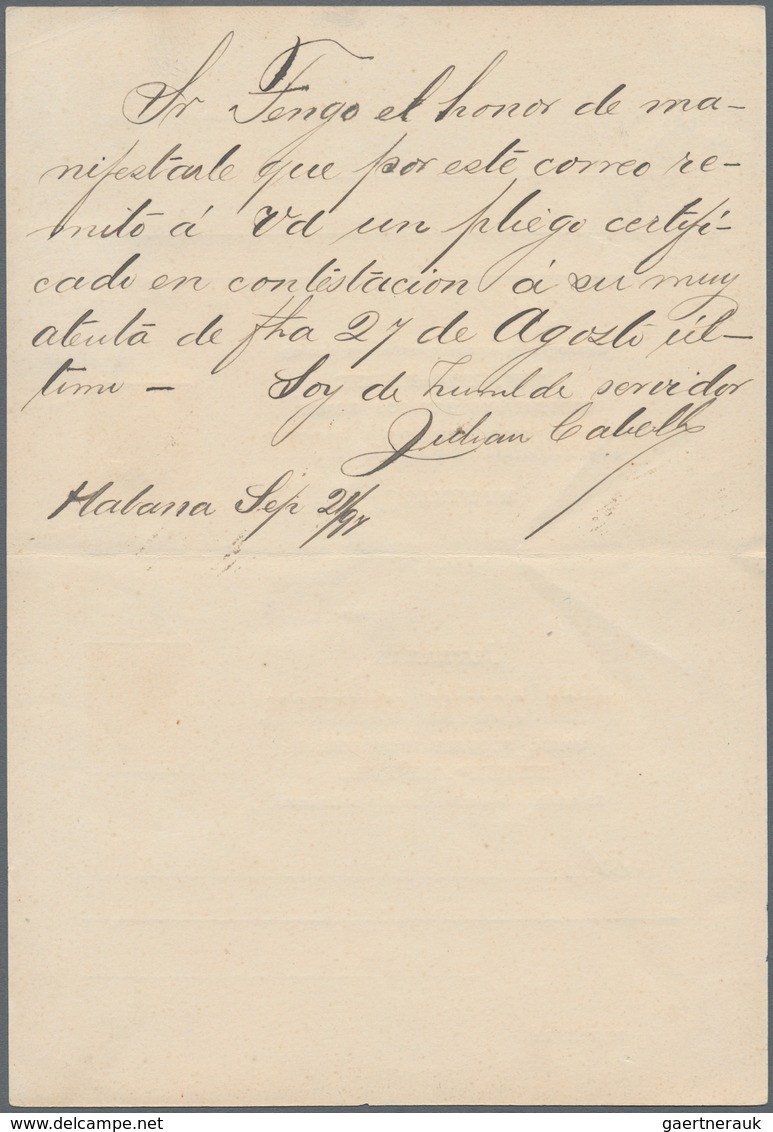 Sr Tengo el honor de ma-
nifestarle que por este correo re-
mito á Vd un pliego certifi-
cado en contestacion á su muy
atenta de fha 27 de Agosto úl-
timo - Soy de humilde servidor
Julian Cabello
Habana Sep 21/97
gaertnerauk